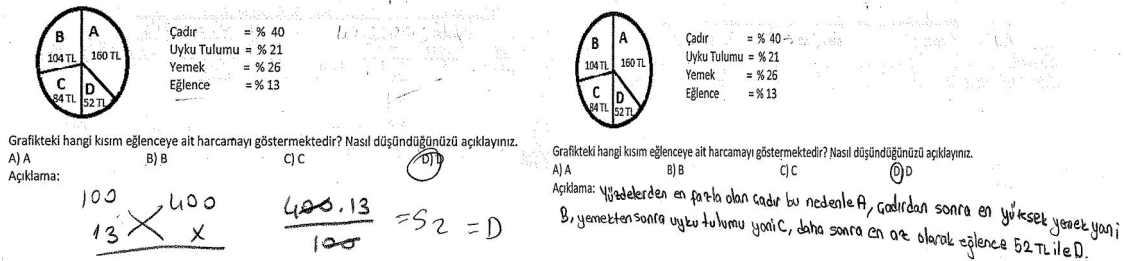 B
A
104 TL
160 TL
C
D
84 TL
52 TL
Çadır = % 40
Uyku Tulumu = % 21
Yemek = % 26
Eğlence = % 13
Grafikteki hangi kısım eğlenceye ait harcamayı göstermektedir? Nasıl düşündüğünüzü açıklayınız.
A) A B) B C) C D) D
Açıklama:
100 400
13 x
400.13
100
=52 = D
B
A
104 TL
160 TL
C
D
84 TL
52 TL
Çadır = % 40
Uyku Tulumu = % 21
Yemek = % 26
Eğlence = % 13
Grafikteki hangi kısım eğlenceye ait harcamayı göstermektedir? Nasıl düşündüğünüzü açıklayınız.
A) A B) B C) C D) D
Açıklama: Yüzdelerden en fazla olan çadır bu nedenle A, çadırdan sonra en yüksek yemek yani
B, yemekten sonra uyku tulumu yani C, daha sonra en az olarak eğlence 52 TL ile D.